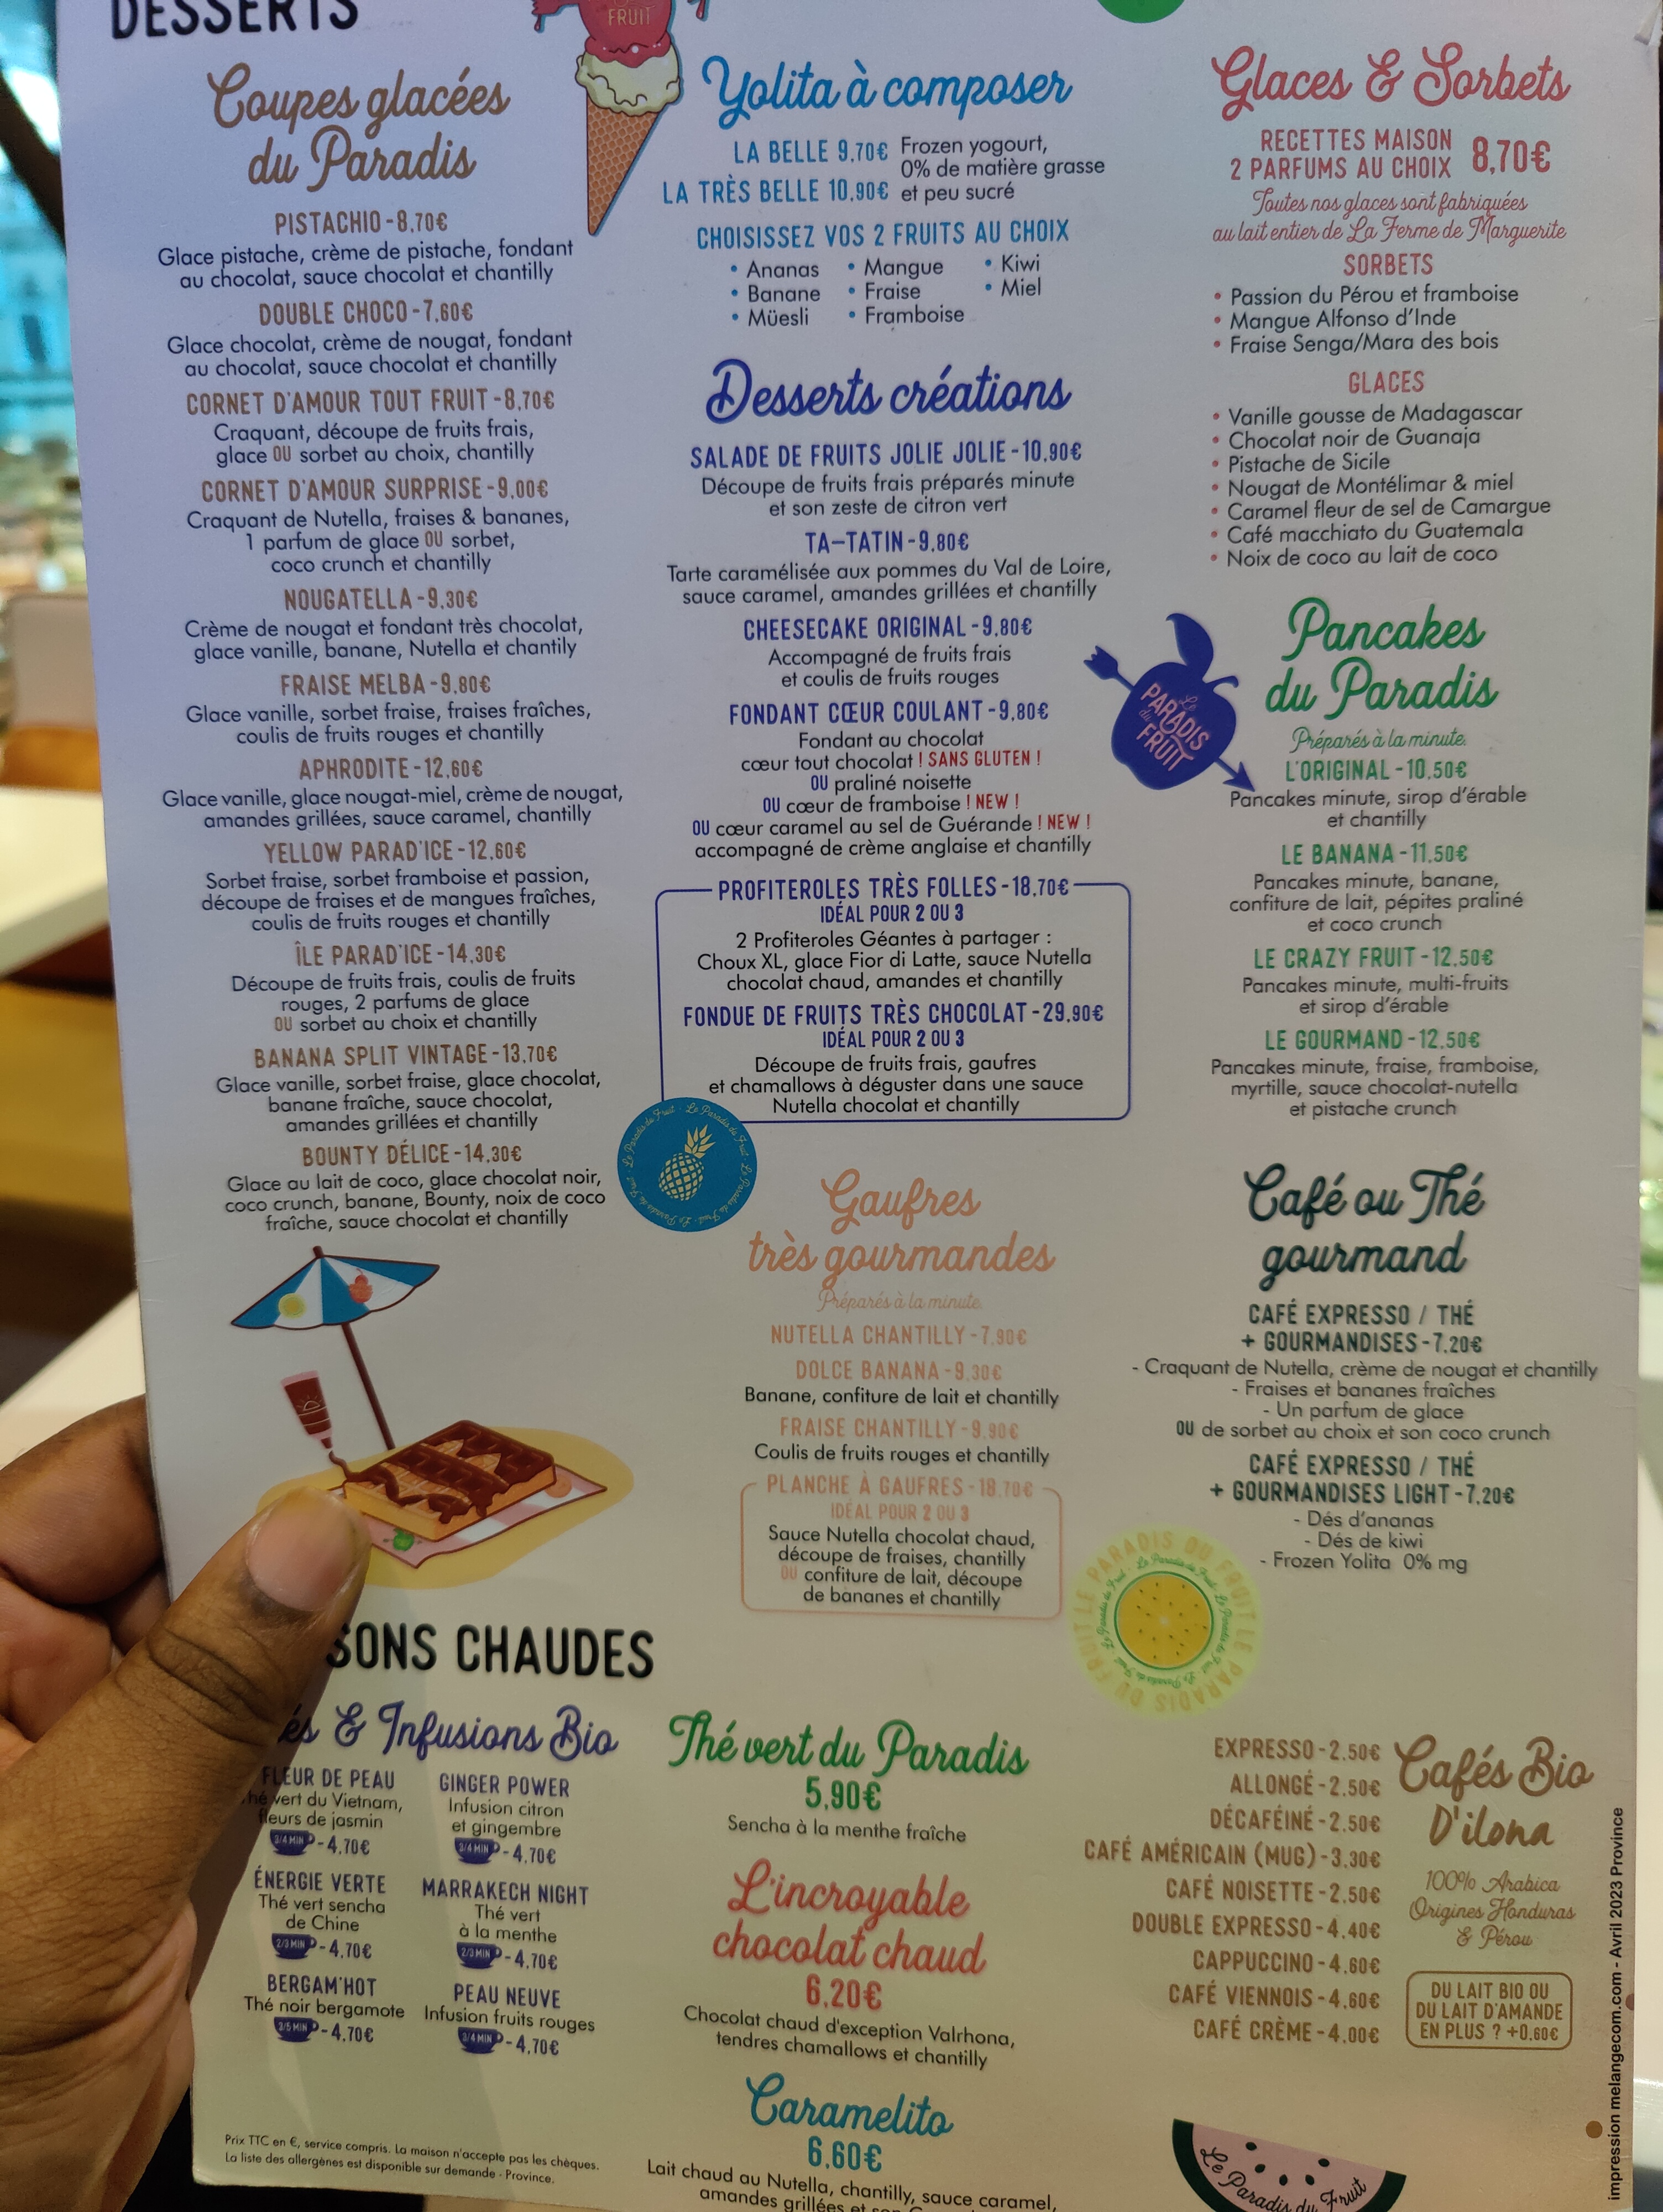 DESSERTS
FRUIT
Coupes glacées
du Paradis
PISTACHIO - 8,70€
Glace pistache, crème de pistache, fondant
au chocolat, sauce chocolat et chantilly
DOUBLE CHOCO - 7,60€
Glace chocolat, crème de nougat, fondant
au chocolat, sauce chocolat et chantilly
CORNET D'AMOUR TOUT FRUIT - 8,70€
Craquant, découpe de fruits frais,
glace OU sorbet au choix, chantilly
CORNET D'AMOUR SURPRISE - 9,00€
Craquant de Nutella, fraises & bananes,
1 parfum de glace OU sorbet,
coco crunch et chantilly
NOUGATELLA - 9,30€
Crème de nougat et fondant très chocolat,
glace vanille, banane, Nutella et chantily
FRAISE MELBA - 9,80€
Glace vanille, sorbet fraise, fraises fraîches,
coulis de fruits rouges et chantilly
APHRODITE - 12,60€
Glace vanille, glace nougat-miel, crème de nougat,
amandes grillées, sauce caramel, chantilly
YELLOW PARAD'ICE - 12,60€
Sorbet fraise, sorbet framboise et passion,
découpe de fraises et de mangues fraîches,
coulis de fruits rouges et chantilly
ÎLE PARAD'ICE - 14,30€
Découpe de fruits frais, coulis de fruits
rouges, 2 parfums de glace
OU sorbet au choix et chantilly
BANANA SPLIT VINTAGE - 13,70€
Glace vanille, sorbet fraise, glace chocolat,
banane fraîche, sauce chocolat,
amandes grillées et chantilly
BOUNTY DÉLICE - 14,30€
Glace au lait de coco, glace chocolat noir,
coco crunch, banane, Bounty, noix de coco
fraîche, sauce chocolat et chantilly
Yolita à composer
LA BELLE 9,70€
LA TRÈS BELLE 10,90€
Frozen yogourt,
0% de matière grasse
et peu sucré
CHOISISSEZ VOS 2 FRUITS AU CHOIX
• Ananas • Mangue • Kiwi
• Banane • Fraise • Miel
• Müesli • Framboise
Desserts créations
SALADE DE FRUITS JOLIE JOLIE - 10,90€
Découpe de fruits frais préparés minute
et son zeste de citron vert
TA-TATIN - 9,80€
Tarte caramélisée aux pommes du Val de Loire,
sauce caramel, amandes grillées et chantilly
CHEESECAKE ORIGINAL - 9,80€
Accompagné de fruits frais
et coulis de fruits rouges
FONDANT CŒUR COULANT - 9,80€
Fondant au chocolat
cœur tout chocolat ! SANS GLUTEN !
OU praliné noisette
OU cœur de framboise ! NEW !
OU cœur caramel au sel de Guérande ! NEW !
accompagné de crème anglaise et chantilly
PROFITEROLES TRÈS FOLLES - 18,70€
IDÉAL POUR 2 OU 3
2 Profiteroles Géantes à partager :
Choux XL, glace Fior di Latte, sauce Nutella
chocolat chaud, amandes et chantilly
FONDUE DE FRUITS TRÈS CHOCOLAT - 29,90€
IDÉAL POUR 2 OU 3
Découpe de fruits frais, gaufres
et chamallows à déguster dans une sauce
Nutella chocolat et chantilly
Le Paradis du Fruit · Le Paradis du Fruit · Le Paradis du Fruit
Gaufres
très gourmandes
Préparés à la minute.
NUTELLA CHANTILLY - 7,90€
DOLCE BANANA - 9,30€
Banane, confiture de lait et chantilly
FRAISE CHANTILLY - 9,90€
Coulis de fruits rouges et chantilly
PLANCHE À GAUFRES - 18,70€
IDÉAL POUR 2 OU 3
Sauce Nutella chocolat chaud,
découpe de fraises, chantilly
OU confiture de lait, découpe
de bananes et chantilly
Glaces & Sorbets
RECETTES MAISON
2 PARFUMS AU CHOIX
8,70€
Toutes nos glaces sont fabriquées
au lait entier de La Ferme de Marguerite
SORBETS
• Passion du Pérou et framboise
• Mangue Alfonso d'Inde
• Fraise Senga/Mara des bois
GLACES
• Vanille gousse de Madagascar
• Chocolat noir de Guanaja
• Pistache de Sicile
• Nougat de Montélimar & miel
• Caramel fleur de sel de Camargue
• Café macchiato du Guatemala
• Noix de coco au lait de coco
Le
PARADIS
du
FRUIT
Pancakes
du Paradis
Préparés à la minute.
L'ORIGINAL - 10,50€
Pancakes minute, sirop d'érable
et chantilly
LE BANANA - 11,50€
Pancakes minute, banane,
confiture de lait, pépites praliné
et coco crunch
LE CRAZY FRUIT - 12,50€
Pancakes minute, multi-fruits
et sirop d'érable
LE GOURMAND - 12,50€
Pancakes minute, fraise, framboise,
myrtille, sauce chocolat-nutella
et pistache crunch
Café ou Thé
gourmand
CAFÉ EXPRESSO / THÉ
+ GOURMANDISES - 7,20€
- Craquant de Nutella, crème de nougat et chantilly
- Fraises et bananes fraîches
- Un parfum de glace
OU de sorbet au choix et son coco crunch
CAFÉ EXPRESSO / THÉ
+ GOURMANDISES LIGHT - 7,20€
- Dés d'ananas
- Dés de kiwi
- Frozen Yolita 0% mg
LE PARADIS DU FRUIT LE PARADIS DU FRUIT
Le Paradis du Fruit · Le Paradis du Fruit
SONS CHAUDES
és & Infusions Bio
FLEUR DE PEAU
hé vert du Vietnam,
fleurs de jasmin
3/4 MIN - 4,70€
ÉNERGIE VERTE
Thé vert sencha
de Chine
2/3 MIN - 4,70€
BERGAM'HOT
Thé noir bergamote
3/5 MIN - 4,70€
GINGER POWER
Infusion citron
et gingembre
3/4 MIN - 4,70€
MARRAKECH NIGHT
Thé vert
à la menthe
2/3 MIN - 4,70€
PEAU NEUVE
Infusion fruits rouges
3/4 MIN - 4,70€
Thé vert du Paradis
5,90€
Sencha à la menthe fraîche
L'incroyable
chocolat chaud
6,20€
Chocolat chaud d'exception Valrhona,
tendres chamallows et chantilly
Caramelito
6,60€
Lait chaud au Nutella, chantilly, sauce caramel,
amandes grillées et son
EXPRESSO - 2,50€
ALLONGÉ - 2,50€
DÉCAFÉINÉ - 2,50€
CAFÉ AMÉRICAIN (MUG) - 3,30€
CAFÉ NOISETTE - 2,50€
DOUBLE EXPRESSO - 4,40€
CAPPUCCINO - 4,60€
CAFÉ VIENNOIS - 4,60€
CAFÉ CRÈME - 4,00€
Cafés Bio
D'ilona
100% Arabica
Origines Honduras
& Pérou
DU LAIT BIO OU
DU LAIT D'AMANDE
EN PLUS ? +0,60€
Le Paradis du Fruit
Prix TTC en €, service compris. La maison n'accepte pas les chèques.
La liste des allergènes est disponible sur demande - Province.
impression melangecom.com - Avril 2023 Province